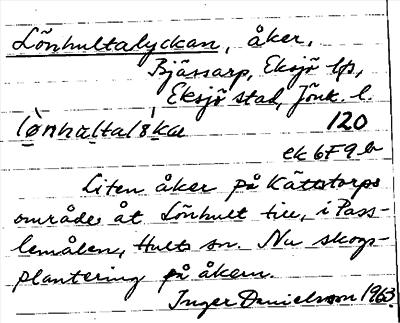 Lönhultalyckan, åker,
Bjässarp, Eksjö lfs,
Eksjö stad, Jönk. l.
120
ek 6F9b
Liten åker på Kättstorps
område åt Lönhult till, i Pass-
lemålen, Hults sn. Nu skogs-
plantering på åkern.
Inger Danielsson 1963